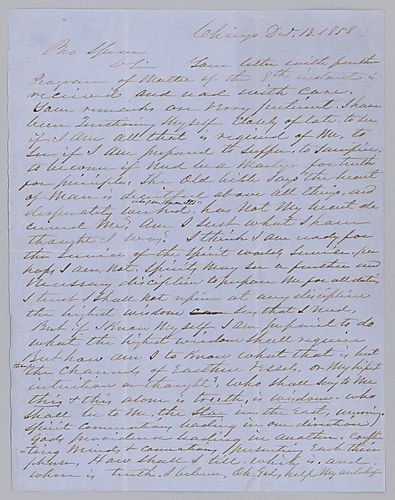 Chicago Dec. 13, 1858
Bro Spear
Sir Your letter with further
Program of Matter of the 8th instant is
received and read with care.
Your remarks are very pertinent. I have
been Questioning Myself Closely of late, to see
if I Am all that is required of Me, to
See if I Am prepared to suffer, to Sacrifice,
to become if need be a Martyr for truth
for principle. The Old bible Says the heart
of Man is deceitful above all things, and
desperately wicked, has Not My heart de
ceived Me? Am I just what I have
thought I was? I think I am ready for
the Service of the Spirit world, per
haps I am Not. Spirits May see a further and
Necessary discipline to prepare Me for all duties
I trust I shall not repine at any discipline
the highest wisdom say that I need,
But if I know My self I am prepared to do
what the highest wisdom shall require
But how am I to Know what that is but
through the Channels of Earthen Vessels, or My highest
intuition or thought?, who shall say to Me
this & this alone is truth, is wisdom. who
shall be to Me the Star in the East,
Spirit Communication leading in one direction
Gods providence leading in another, Conflic
ting Minds & Communications, Each their
phase. How shall I tell which is, and
where is truth. I believe, Oh God, help My unbelief